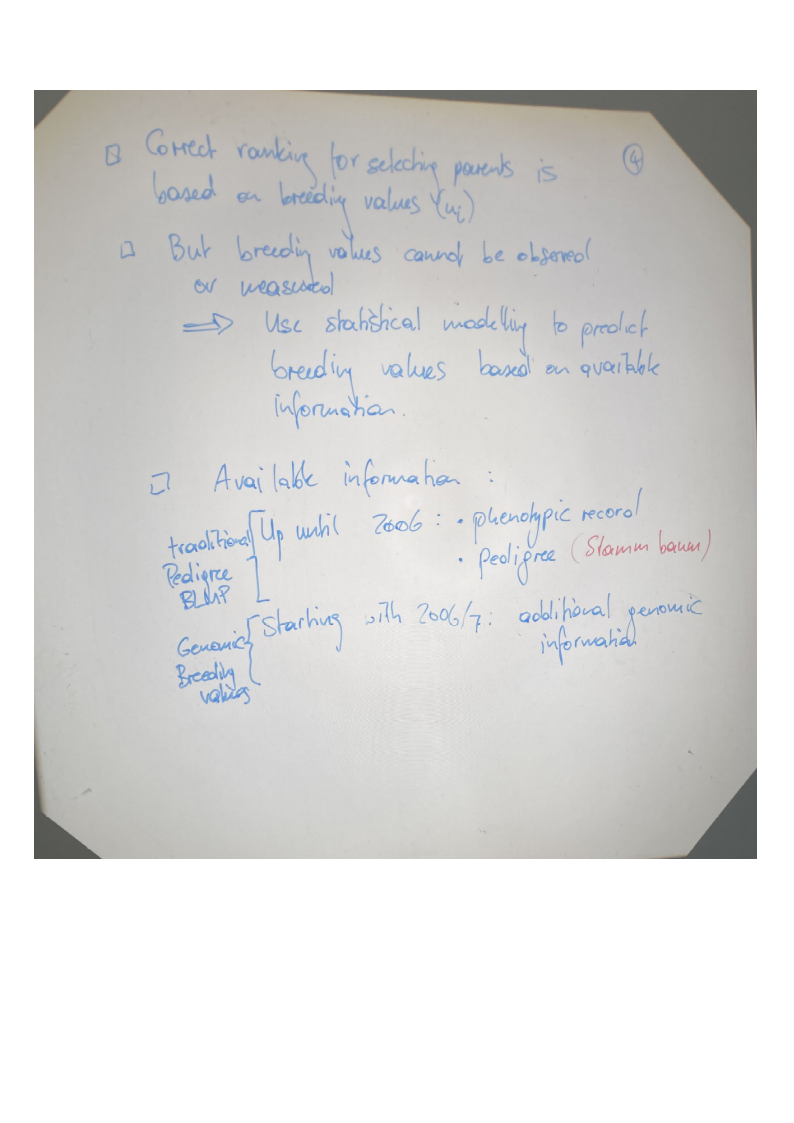 ④
□ Correct ranking for selecting parents is
based on breeding values (ui)
□ But breeding values cannot be observed
or measured
⇒ Use statistical modelling to predict
breeding values based on available
information.
□ Available information :
traditional Pedigree BLUP
Up until 2006 : • phenotypic record
• pedigree (Stammbaum)
Genomic Breeding values
Starting with 2006/7: additional genomic
information